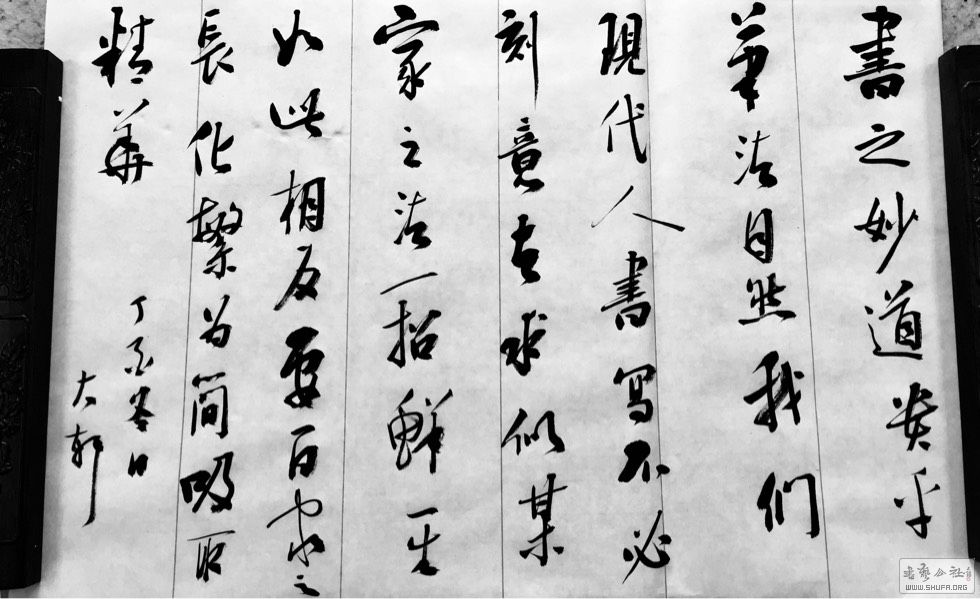 書之妙道貴乎
筆法自然我們
現代人書寫不必
刻意去求似某
家之法一招鮮一生
如此相反要百家之
長化繁为简吸取
精華
丁 日
大
书艺公社
WWW.SHUFA.ORG